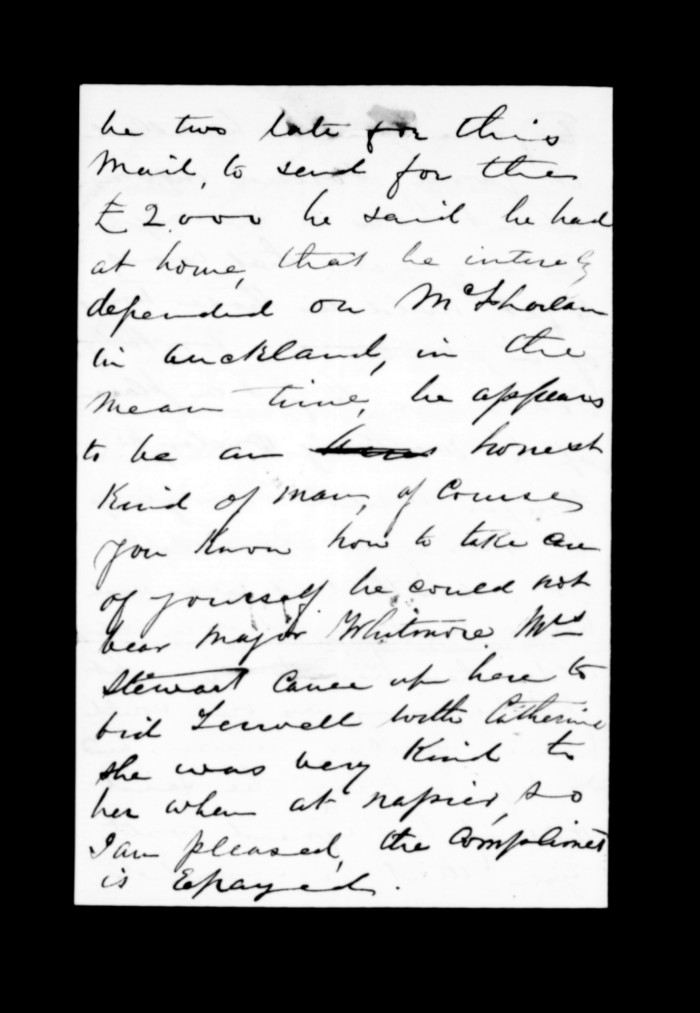 be two late for this
Mail, to send for the
£2.000 he said he had
at home, that he intirely
depended on
in auckland, in the
mean time, he appears
to be an honest
Kind of man, of course
you know how to take care
of yourself he could not
bear Major Whitmore. Mrs
Stewart came up here to
bid with Catherine
she was very Kind to
her when at napier, so
I am pleased, the Compliment
is Epayed.